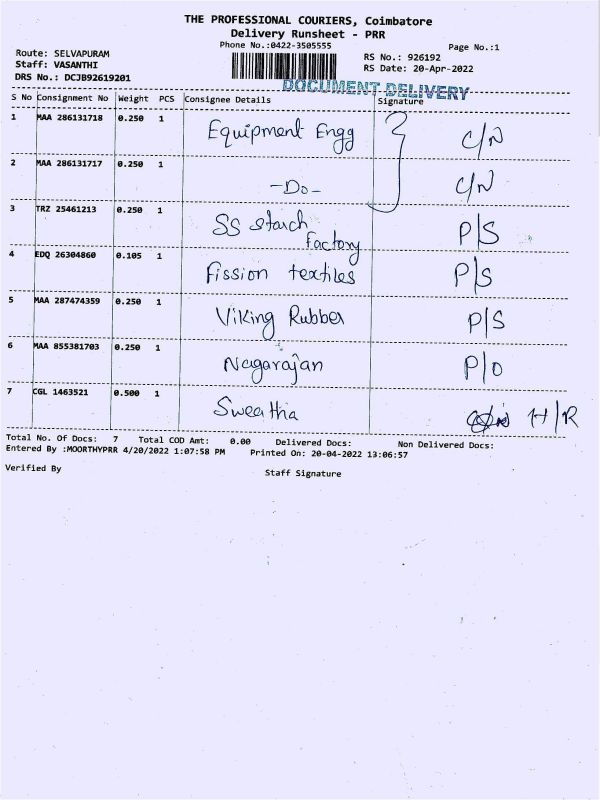 THE PROFESSIONAL COURIERS, Coimbatore
Delivery Runsheet - PRR
Phone No.:0422-3505555
Page No.:1
Route: SELVAPURAM
RS No.: 926192
Staff: VASANTHI
RS Date: 20-Apr-2022
DRS No.: DCJB92619201
DOCUMENT DELIVERY
S No Consignment No Weight PCS Consignee Details Signature
1 MAA 286131718 0.250 1 Equipment Engg C/N
2 MAA 286131717 0.250 1 -Do- C/N
3 TRZ 25461213 0.250 1 SS starch Factory P/S
4 EDQ 26304860 0.105 1 Fission textiles P/S
5 MAA 287474359 0.250 1 Viking Rubber P/S
6 MAA 855381703 0.250 1 Nagarajan P/O
7 CGL 1463521 0.500 1 Sweatha H/R
Total No. Of Docs: 7 Total COD Amt: 0.00 Delivered Docs: Non Delivered Docs:
Entered By :MOORTHYPRR 4/20/2022 1:07:58 PM Printed On: 20-04-2022 13:06:57
Verified By Staff Signature